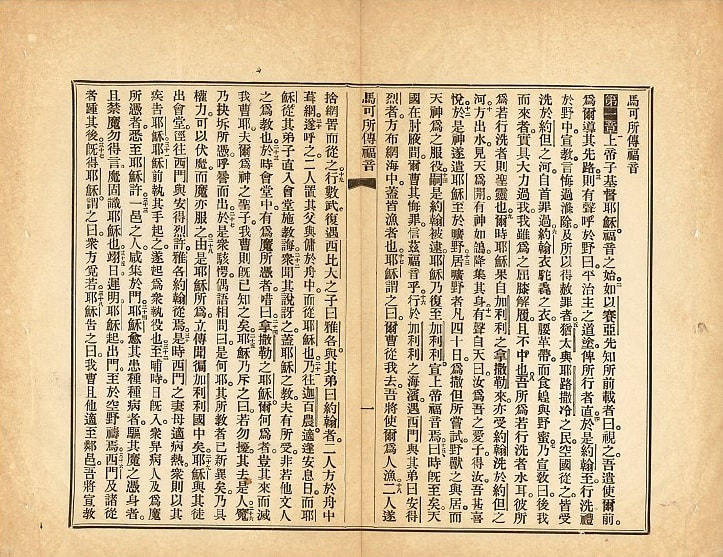 馬可所傳福音
第一章上帝子基督耶穌福音之始如以賽亞先知所前載者曰視之吾遣使爾前
為爾導其先路則有聲呼於野曰平治主之道塗俾所行者直於是約翰至行洗禮
於野中宣教言悔過滌除及所以得赦罪者猶太與耶路撒冷之民空國從之皆受
洗於約但之河自首罪過約翰衣駝毳之衣腰革帶而食蝗與野蜜乃宣教曰後我
而來者實具大力過我我雖為之屈膝解履且不中也吾所為若行洗者水耳彼所
為若行洗者則聖靈也爾時耶穌果自加利利之拿撒勒來亦受約翰洗於約但之
河方出水見天為開有神如鴿降集其身有聲自天曰汝為吾之愛子得汝吾甚喜
悅於是神遂遣耶穌至於曠野居曠野者凡四十日為撒但所嘗試野獸之與居而
天神為之服役嗣是約翰被逮耶穌乃復至加利利宣上帝福音焉曰時旣至矣天
國在肘腋間爾曹其悔罪信茲福音乎行於加利利之海濱遇西門與其弟曰安得
烈者方布網海中蓋皆漁者也耶穌謂之曰爾曹從我去吾將使爾為人漁二人遂
馬可所傳福音
一
捨網罟而從之行數武復遇西比大之子曰雅各與其弟曰約翰者二人方於舟中
葺網遂呼之二人置其父與傭於舟中而從耶穌也乃往迦百農適逢安息日而耶
穌從其弟子直入會堂施教誨眾聞其說訝之蓋耶穌之教夫有所受非若他文人
之為教也於時會堂中有為魔所憑者唶曰拿撒勒之耶穌爾何為者豈其來而滅
我曹耶夫爾為神之聖子我曹則旣已知之矣耶穌乃斥之曰若勿擾其去是人魔
乃抉坼所憑呼謈而出於是眾駭愕偶語相問曰是何耶其所教者已新異矣乃具
權力可以伏魔而魔亦服之由是耶穌所為立傳聞徧加利利國中矣耶穌與其徒
出會堂徑往西門與安得烈許雅各約翰從焉是時西門之妻母適病熱眾則以其
疾吿耶穌耶穌前執其手起之遂起為眾執役也至晡時日旣入眾舁病人及為魔
所憑者悉至耶穌許一邑之人咸集於門耶穌愈其患種種病者驅其魔之憑身者
且禁魔勿得言魔固識耶穌也翌日遲明耶穌起出門至於空野禱焉西門及諸從
者踵其後旣得耶穌謂之曰眾方覓若耶穌吿之曰我曹且他適至鄰邑吾將宣教